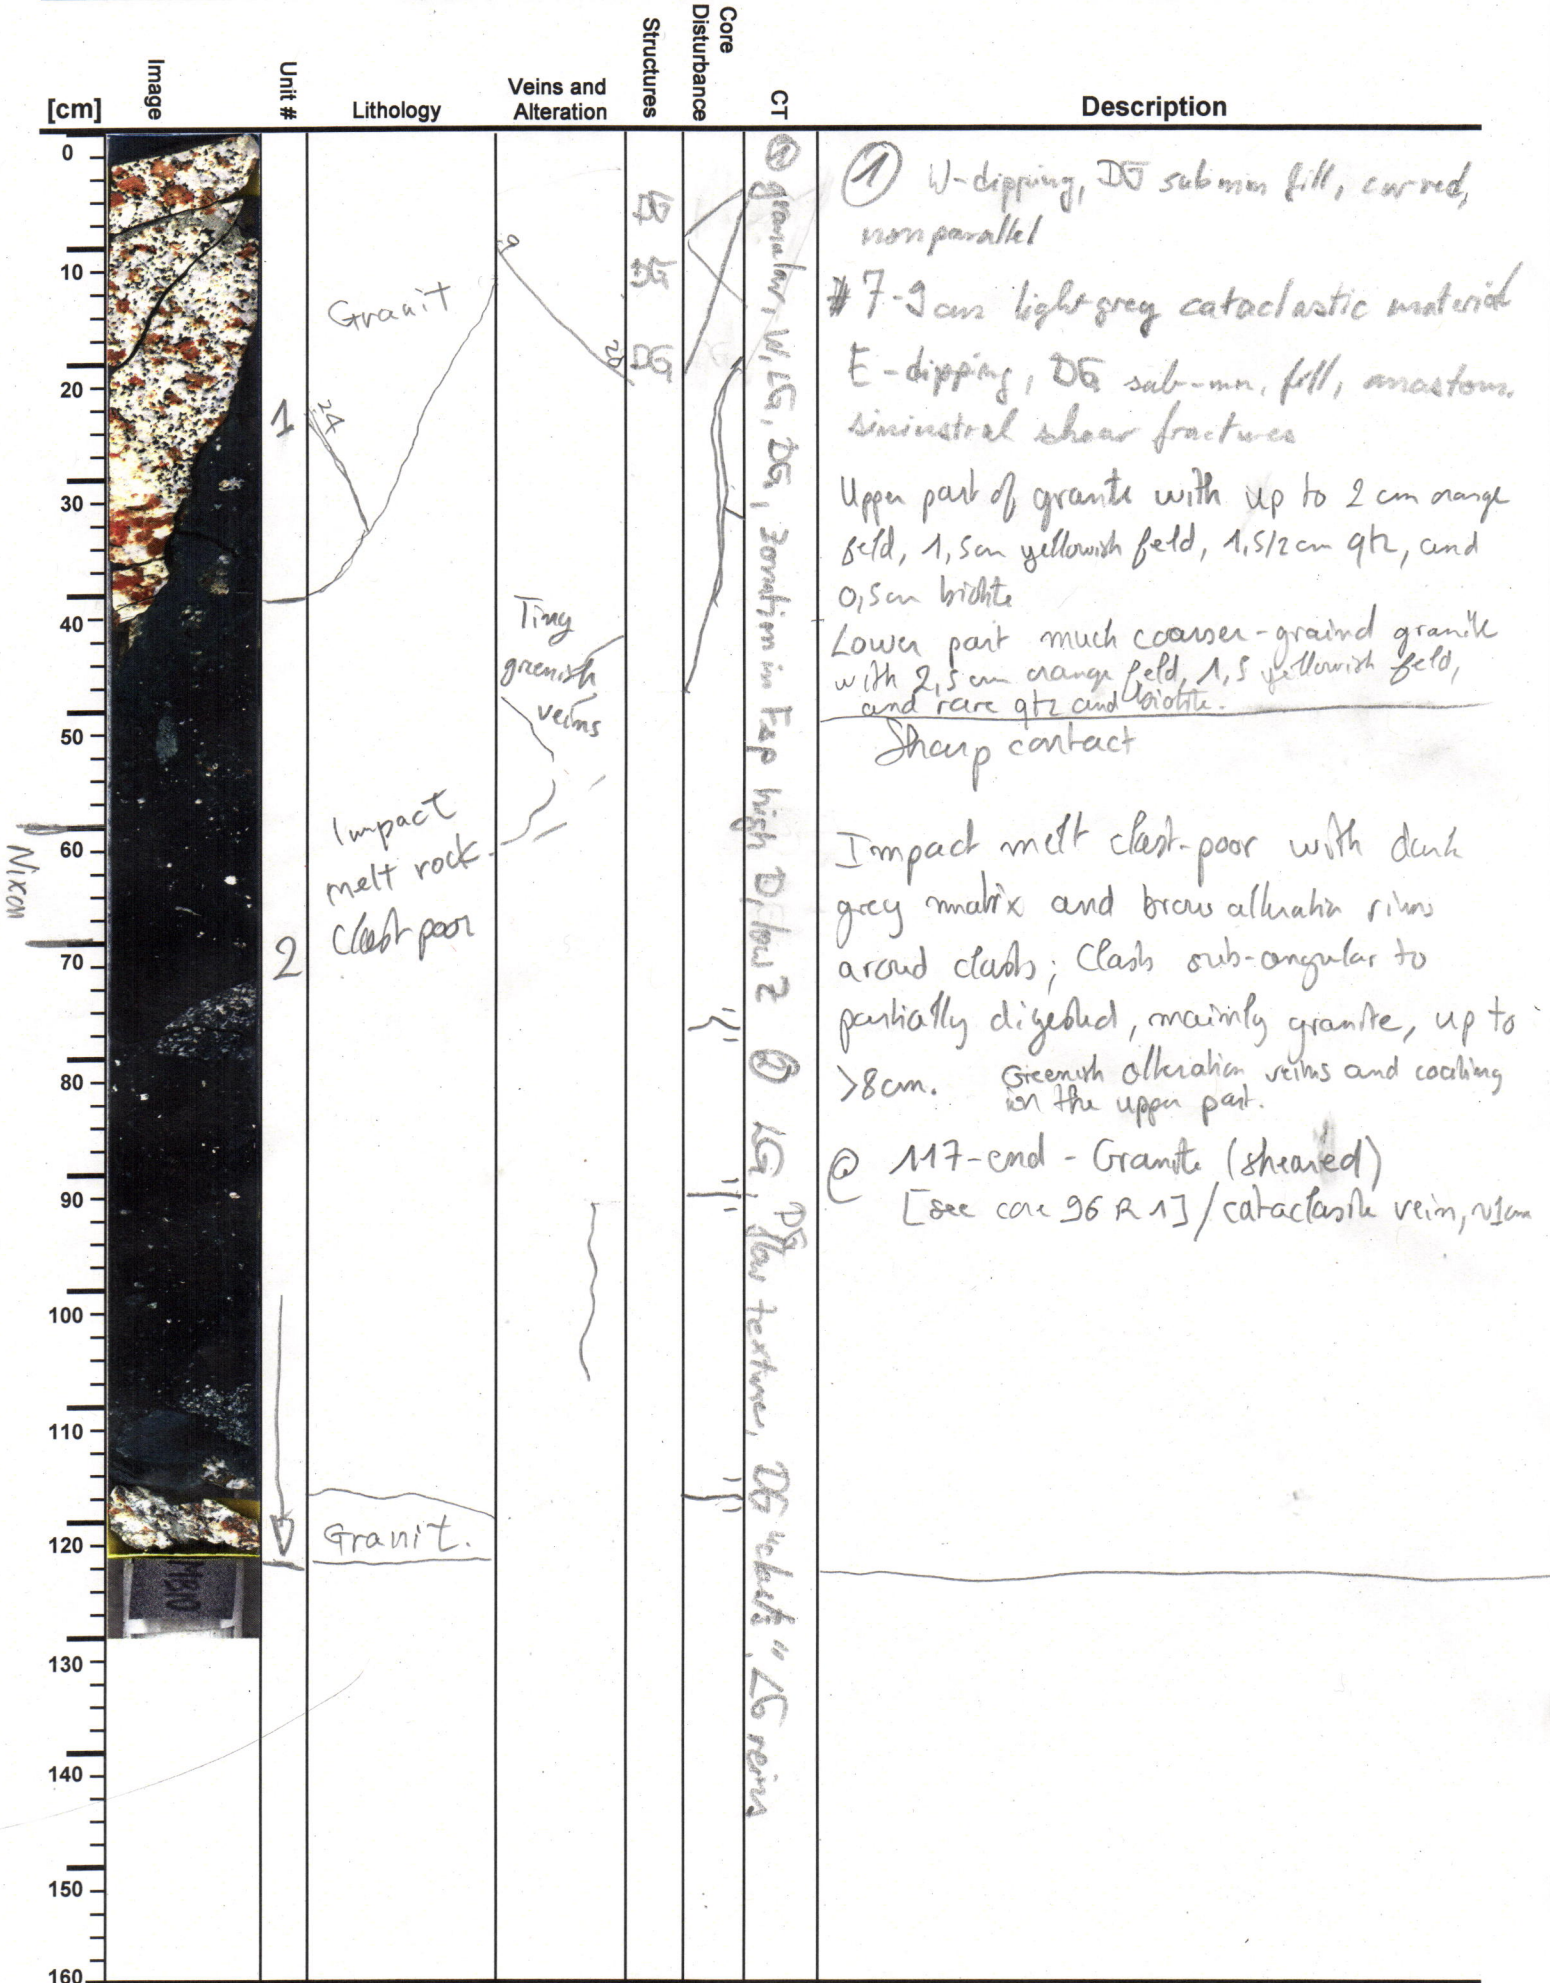 [cm]
Image
Unit #
Lithology
Veins and
Alteration
Structures
Core
Disturbance
CT
Description
0
10
20
30
40
50
60
70
80
90
100
110
120
130
140
150
160
Nixon
1
2
24
Granit
Impact
melt rock
clast poor
Granit.
9
20
Tiny
greenish
veins
DG
granular, W, LG, DG, zonation in Fsp high D, low Z
LG, DG flow texture, DG "clasts", LG veins
1 W-dipping, DG submm fill, curved,
nonparallel
7-9cm light grey cataclastic material
E-dipping, DG sub-mm. fill, anastom.
sininistral shear fractures
Upper part of granite with up to 2 cm orange
feld, 1,5cm yellowish feld, 1,5/2 cm qtz, and
0,5cm biotite
Lower part much coarser-graind granite
with 2,5 cm orange feld, 1,5 yellowish feld,
and rare qtz and biotite.
Sharp contact
Impact melt clast-poor with dark
grey matrix and brown alteration rims
around clasts; Clasts sub-angular to
partially digested, mainly granite, up to
>8cm. Greenish alteration veins and coating
in the upper part.
@ 117-end - Granite (sheared)
[see core 96 R 1] / cataclasite vein, ~1cm